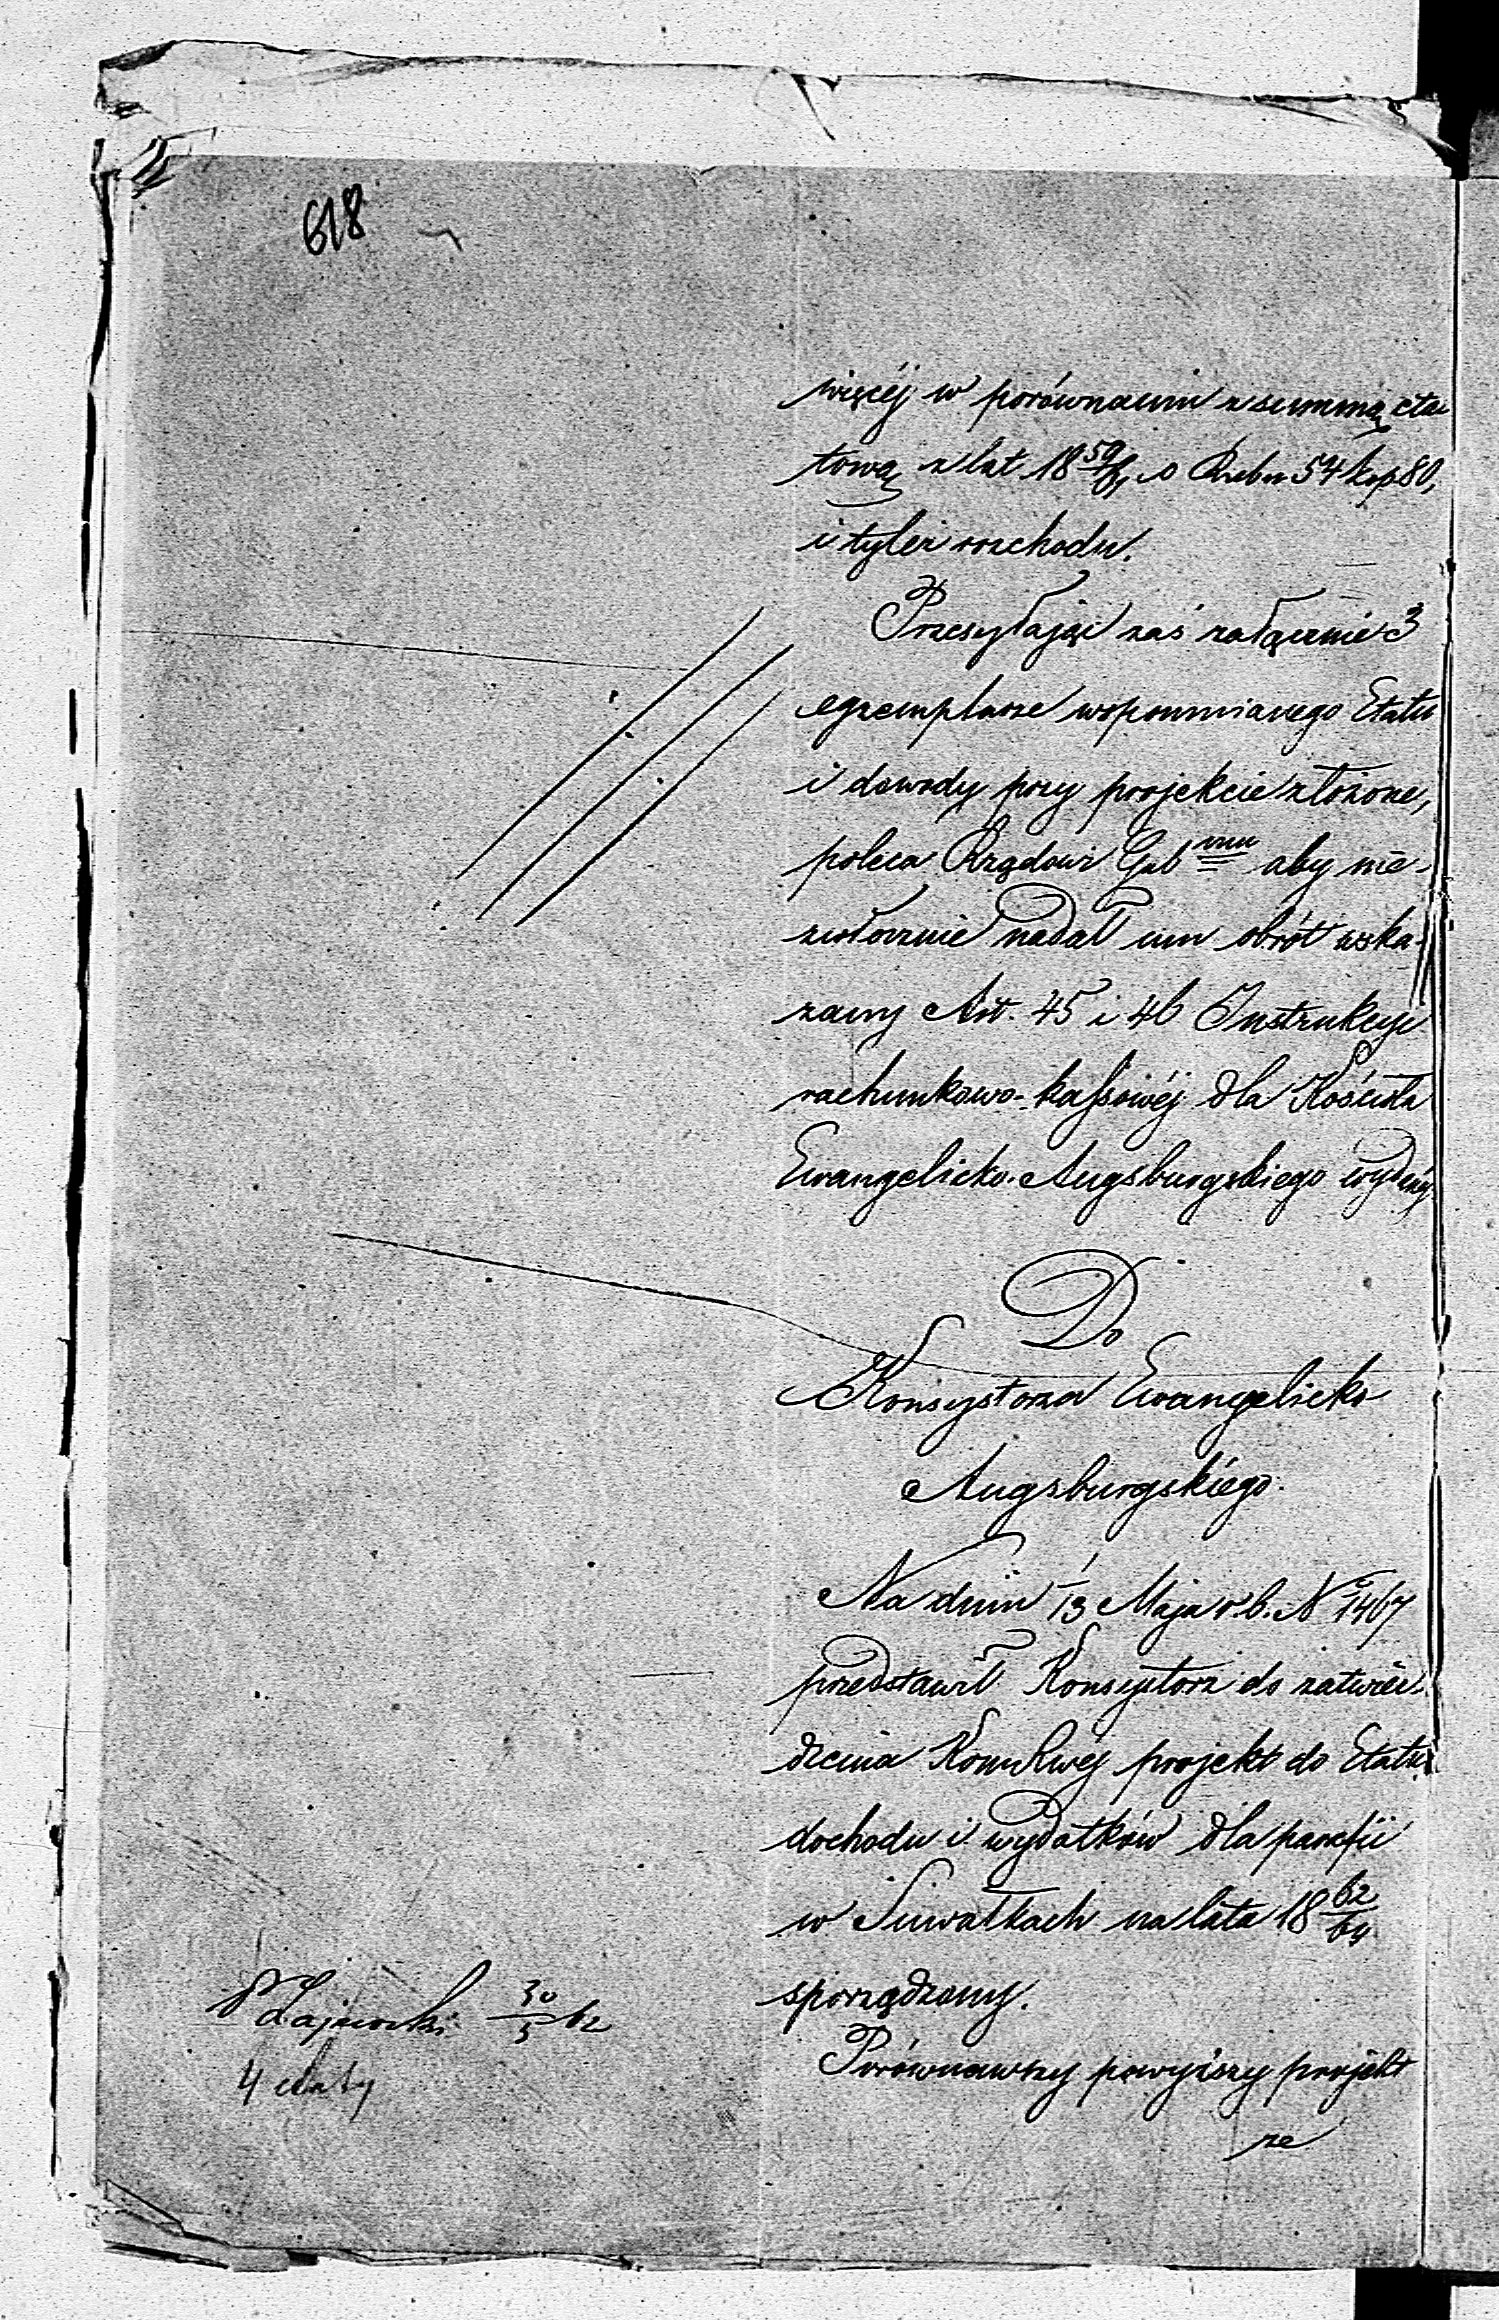 618
więcéj w porównaniu z summą eta-
tową z lat 18 59/61 o Rubr 54 kop 80,
i tyleż rozchodu.
Przesyłając zaś załącznie 3
egzemplarze wspomnianego Etatu
i dowody przy projekcie złożone,
poleca Rządowi Gub mu aby nie-
zwłocznie nadał im obrót wska-
zany Art. 45 i 46 Instrukcyi
rachunkowo-kassowéj dla Kościoła
Ewangelicko-Augsburgskiego wydanéj
Do
Konsystorza Ewangelicko
Augsburgskiego.
Na dniu 1/13 Maja r. b. No 1467
przedstawił Konsystorz do zatwier-
dzenia Kom Rwéj projekt do Etatu
dochodu i wydatków dla parafii
w Suwałkach na lata 18 62/64
sporządzony.
Porównawszy powyższy projekt
ze
30/5 62
4 etaty